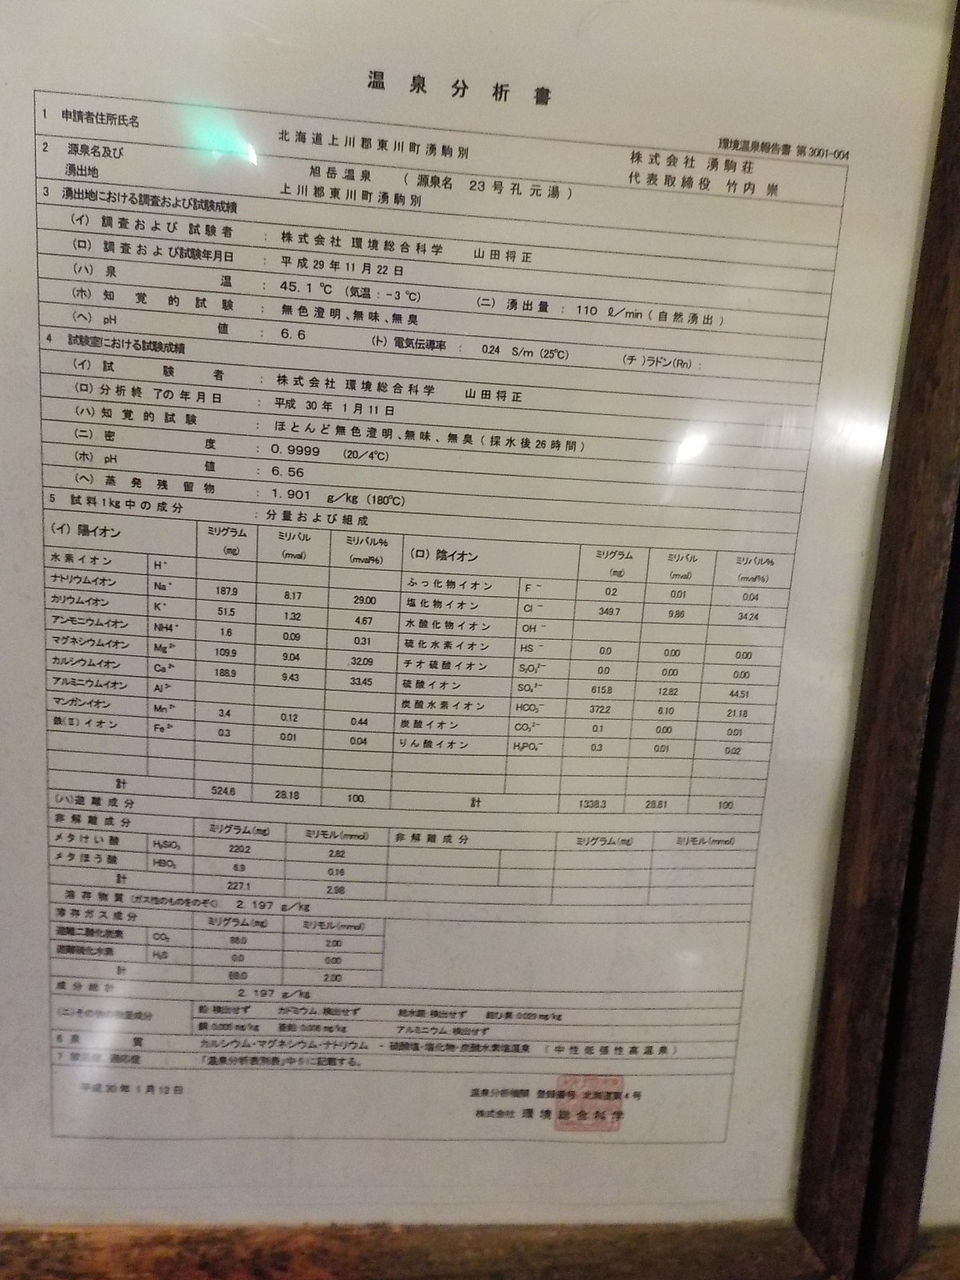 温泉分析書
環境温泉報告書 第3001-004
1 申請者住所氏名 北海道上川郡東川町湧駒別 株式会社 湧駒荘
代表取締役 竹内 崇
2 源泉名及び 旭岳温泉 (源泉名 23号孔元湯)
湧出地 上川郡東川町湧駒別
3 湧出地における調査および試験成績
(イ) 調査および試験者 : 株式会社 環境総合科学 山田将正
(ロ) 調査および試験年月日 : 平成29年11月22日
(ハ) 泉温 : 45.1 ℃ (気温:-3℃) (ニ) 湧出量 : 110 ℓ/min (自然湧出)
(ホ) 知覚的試験 : 無色澄明、無味、無臭
(ヘ) pH値 : 6.6 (ト) 電気伝導率 : 0.24 S/m (25℃) (チ)ラドン(Rn) :
4 試験室における試験成績
(イ) 試験者 : 株式会社 環境総合科学 山田将正
(ロ) 分析終了の年月日 : 平成 30年 1月11日
(ハ) 知覚的試験 : ほとんど無色澄明、無味、無臭(採水後26時間)
(ニ) 密度 : 0.9999 (20/4℃)
(ホ) pH値 : 6.56
(ヘ) 蒸発残留物 : 1.901 g/kg (180℃)
5 試料1kg中の成分 : 分量および組成
(イ) 陽イオン ミリグラム(mg) ミリバル(mval) ミリバル%(mval%) (ロ) 陰イオン ミリグラム(mg) ミリバル(mval) ミリバル%(mval%)
水素イオン H⁺ ふっ化物イオン F⁻ 0.2 0.01 0.04
ナトリウムイオン Na⁺ 187.9 8.17 29.00 塩化物イオン Cl⁻ 349.7 9.86 34.24
カリウムイオン K⁺ 51.5 1.32 4.67 水酸化物イオン OH⁻
アンモニウムイオン NH4⁺ 1.6 0.09 0.31 硫化水素イオン HS⁻ 0.0 0.00 0.00
マグネシウムイオン Mg²⁺ 109.9 9.04 32.09 チオ硫酸イオン S₂O₃²⁻ 0.0 0.00 0.00
カルシウムイオン Ca²⁺ 188.9 9.43 33.45 硫酸イオン SO₄²⁻ 615.8 12.82 44.51
アルミニウムイオン Al³⁺ 炭酸水素イオン HCO₃⁻ 372.2 6.10 21.18
マンガンイオン Mn²⁺ 3.4 0.12 0.44 炭酸イオン CO₃²⁻ 0.1 0.00 0.01
鉄(Ⅱ)イオン Fe²⁺ 0.3 0.01 0.04 りん酸イオン H₂PO₄⁻ 0.3 0.01 0.02
計 524.6 28.18 100. 計 1338.3 28.81 100
(ハ)遊離成分
非解離成分 ミリグラム(mg) ミリモル(mmol) 非解離成分 ミリグラム(mg) ミリモル(mmol)
メタけい酸 H₂SiO₃ 220.2 2.82
メタほう酸 HBO₂ 6.9 0.16
計 227.1 2.98
溶存物質(ガス性のものをのぞく) 2.197 g/kg
溶存ガス成分 ミリグラム(mg) ミリモル(mmol)
遊離二酸化炭素 CO₂ 88.0 2.00
遊離硫化水素 H₂S 0.0 0.00
計 88.0 2.00
成分総計 2.197 g/kg
(ニ)その他の微量成分 鉛:検出せず カドミウム:検出せず 総水銀:検出せず 総ひ素:0.029 mg/kg
銅:0.005 mg/kg 亜鉛:0.006 mg/kg アルミニウム:検出せず
6 泉質 : カルシウム・マグネシウム・ナトリウム - 硫酸塩・塩化物・炭酸水素塩温泉 (中性低張性高温泉)
7 禁忌症、適応症 : 「温泉分析表別表」中6に記載する。
平成30年 1月12日
温泉分析機関 登録番号 北海道第4号
株式会社 環境総合科学